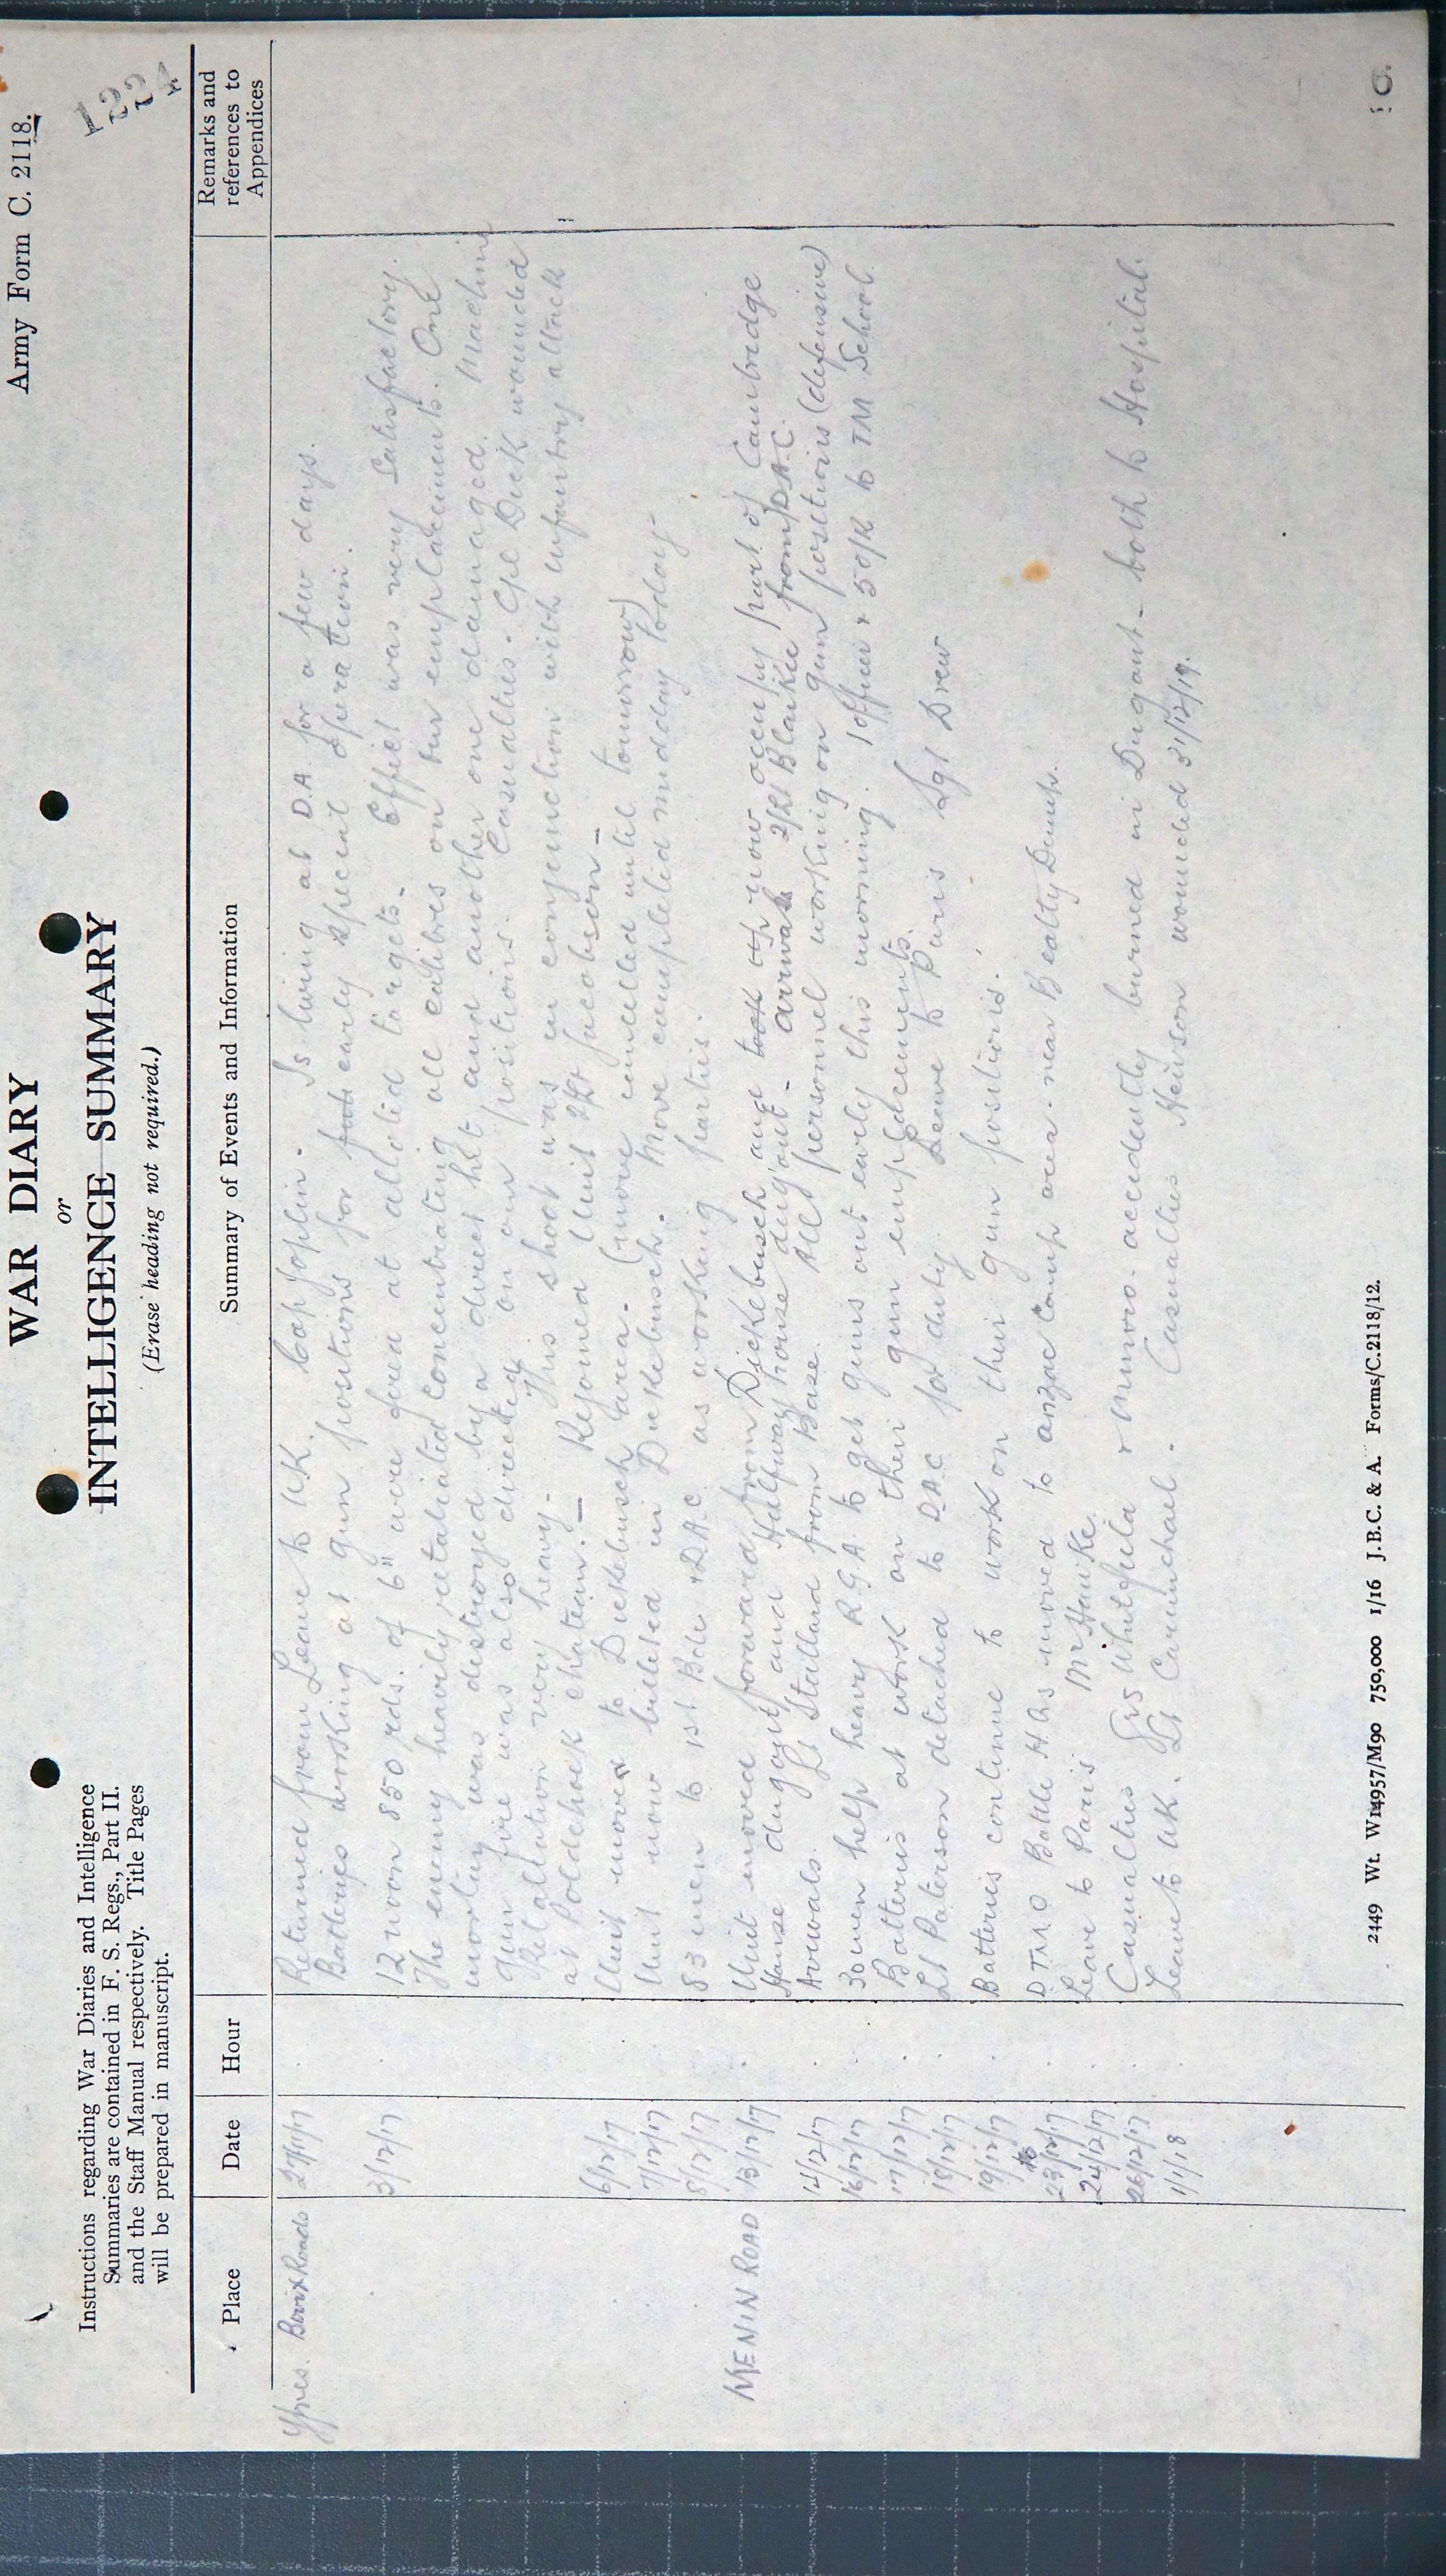 Army Form C. 2118.
1224
WAR DIARY
or
INTELLIGENCE SUMMARY
(Erase heading not required.)
Instructions regarding War Diaries and Intelligence
Summaries are contained in F. S. Regs., Part II.
and the Staff Manual respectively. Title Pages
will be prepared in manuscript.
Place Date Hour Summary of Events and Information Remarks and references to Appendices
Ypres. Roads 27/11/17 Returned from Leave to U.K. Capt Joplin. Is living at D.A. for a few days.
Batteries working at gun positions for early special operation.
3/12/17 12 noon 850 rds. of 6" were fired at allotted targets. Effect was very Satisfactory.
The enemy heavily retaliated concentrating all calibres on our emplacements. One
mortar was destroyed by a direct hit and another one damaged. Machine
Gun fire was also directed on our positions. Casualties. Cpl Dick wounded
Retaliation very heavy - This shoot was in conjunction with infantry attack
at Polderhoek Chateau. - Rejoined Unit 2/Lt Jacobsen -
6/12/17 Unit moved to Dickebusch area. (move cancelled until tomorrow)
7/12/17 Unit now billeted in Dickebusch. Move completed midday today -
8/12/17 83 men to 1st Bde & D.A.C. as working parties.
MENIN ROAD 13/12/17 Unit moved forward from Dickebusch and took up now occupy part of Cambridge
House dugout and Halfway house dug out - arrivals 2/Lt Blaikie from D.A.C.
14/12/17 Arrivals. Lt Stallard from Base. All personnel working on gun positions (defensive)
16/12/17 30 men help heavy R.G.A to get guns out early this morning. 1 officer & 5 O/R to TM School.
17/12/17 Batteries at work on their gun emplacements.
18/12/17 Lt Paterson detached to DAC for duty. Leave to Paris Sgt Drew
19/12/17 Batteries continue to work on their gun positions.
23/12/17 DTMO Battle H.Qs moved to anzac Camp area. near Beatty Dump.
24/12/17 Leave to Paris Mr Hauke.
26/12/17 Casualties Grs Whitfield & Munro. accidently burned in Dugout - both to Hospital.
1/1/18 Leave to UK. Lt Carmichael. Casualties Hewson wounded 31/12/17.
2449 Wt. W14957/M90 750,000 1/16 J.B.C. & A. Forms/C.2118/12.